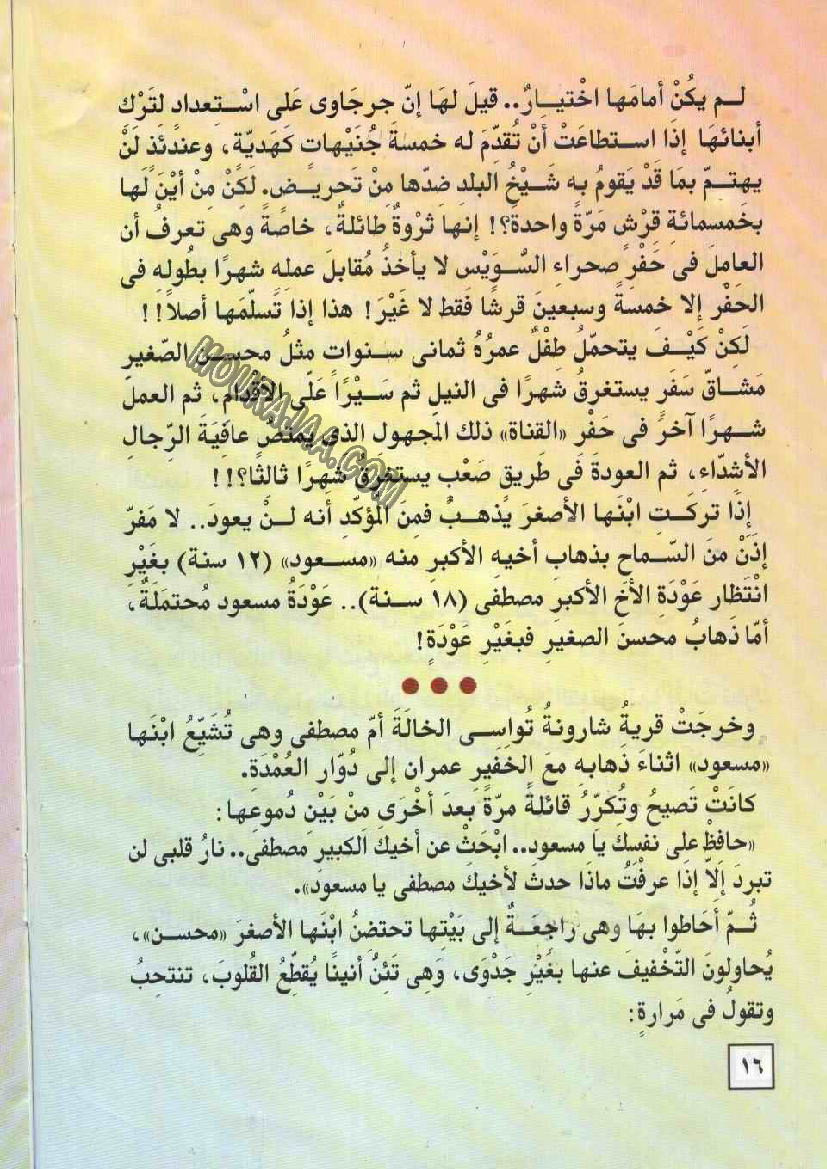 لـم يكُنْ أمامَها اخْتيـارٌ.. قيلَ لهَا إنّ جرجَاوى عَلى اسْـتِعداد لتَرْك
أبنائهَا إذَا استطاعَتْ أنْ تُقدّمَ له خمسةَ جُنَيْهات كَهَديّة، وعندَئذ لَنْ
يهتمّ بمَا قَدْ يَقومُ به شَـيْخُ البلد ضدّها منْ تَحريـضٍ. لكنْ منْ أيْنَ لهَا
بخَمسمائة قرْش مَرّةً واحدة؟! إنهَا ثرْوةٌ طائلةٌ، خاصّةً وهى تعرفُ أن
العاملَ فى حَفْرِ صحراء السُّـوَيْس لا يأخذُ مُقابلَ عمله شهرًا بطُوله فى
الحَفْر إلا خمسةً وسبعينَ قرشًا فقَط لا غَيْرَ! هذا إذَا تَسلّمَها أصلاً!!
لَكنْ كَيْـفَ يتحمّلُ طفْلٌ عمرُهُ ثمانى سـنوات مثلُ محسـن الصّغيرِ
مَشـاقّ سَفَرٍ يستغرقُ شهرًا فى النيلِ ثم سَـيْرًا عَلَى الأقدَام، ثم العملَ
شـهرًا آخرَ فى حَفْر «القناة» ذلك المجهول الذى يمتصّ عافِيَةَ الرّجالِ
الأشدّاءِ، ثم العودةَ فى طَريق صَعْب يستغرقُ شهرًا ثالثًا؟!!
إذَا تركَـتِ ابْنَهـا الأصغرَ يَذهـبُ فمِنَ المؤكّد أنه لـنْ يعودَ.. لا مَفرّ
إذَنْ منَ السّماحِ بذهاب أخيه الأكبرِ منه «مسـعود» (١٢ سنة) بغَيْرِ
انْتظَار عَوْدَة الأخ الأكبرِ مصطفى (١٨ سـنة).. عَوْدَةُ مسعود مُحتملَةٌ،
أمّا ذَهابُ محسنَ الصغيرِ فبغَيْر عَوْدَةٍ!
وخرجَتْ قريةُ شارونةُ تُواسـى الخالَةَ أمّ مصطفى وهى تُشَيّعُ ابْنَها
«مسعود» اثناءَ ذهابه معَ الخفيرِ عمران إلى دُوّار العُمْدَة.
كانَتْ تَصيحُ وتُكَرّرُ قائلةً مرّةً بعدَ أخْرَى منْ بَيْن دُموعِها:
«حافظْ على نفسك يا مسعود.. ابْحَثْ عن أخيك الكبيرِ مصطفى.. نارُ قلبى لن
تبردَ إلاّ إذَا عرفْتُ ماذا حدث لأخيك مصطفى يا مسعود».
ثُـمّ أحَاطوا بهَا وهى رَاجعَـةٌ إلى بَيْتها تحتضنُ ابْنَها الأصغرَ «محسن»،
يُحاولونَ التّخْفيفَ عنها بغَيْرِ جَدْوَى، وَهِى تَئِنُّ أنينًا يُقطّعُ القُلوبَ، تنتحبُ
وتقولُ فى مَرارةٍ:
١٦
MOURAJAA.COM